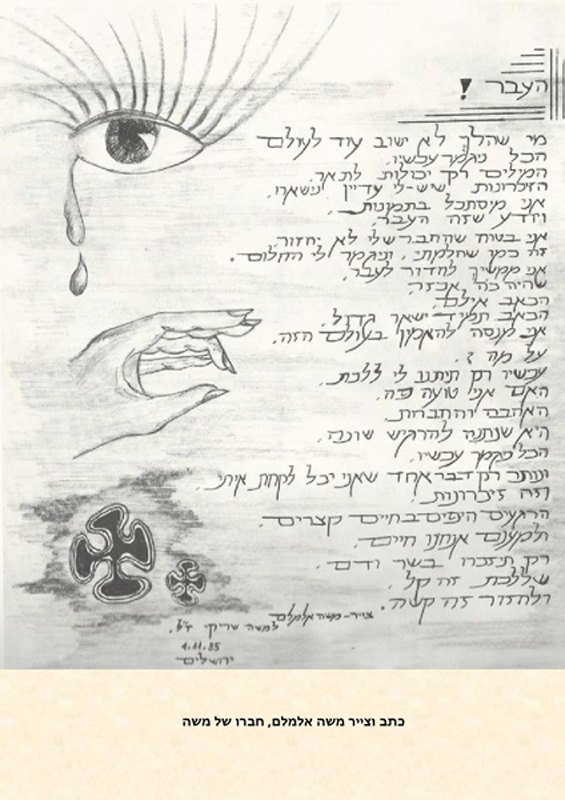 העבר !
מי שהלך לא ישוב עוד לעולם
הכל ניגמר עכשיו.
המילים רק יכולות לתאר.
הזיכרונות שיש-לי עדיין נישארו.
אני מיסתכל בתמונות
ויודע שזה העבר.
אני בטוח שהחבר שלי לא יחזור.
זה כמו שחלמתי, וניגמר לי החלום.
אני ממשיך לחדור לעבר,
שהיה כה אכזר.
הכאב אילם.
הכאב תמיד ישאר גדול.
אני מנסה להאמין בעולם הזה.
על מה ?.
עכשיו רק תיתנו לי ללכת.
האם אני טועה פה.
האהבה והחברות.
היא שנתנה להרגיש שונה.
הכל נגמר עכשיו.
ונותר רק דבר אחד שאני יכל לקחת איתי.
וזה זיכרונות.
הרגעים היפים בחיים קצרים.
ולמענם אנחנו חיים.
רק תיזכרו בשר ודם.
שללכת זה קל.
ולחזור זה קשה.
צייר - משה אלמלם
למשה שריקי ז"ל.
4.11.85
ירושלים
כתב וצייר משה אלמלם, חברו של משה